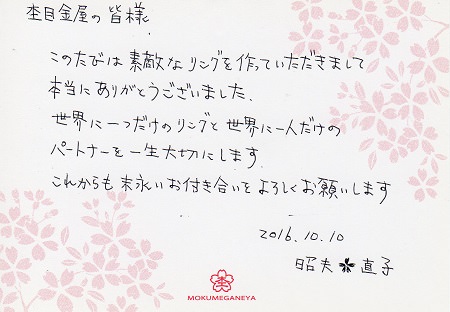 杢目金屋の皆様
このたびは素敵なリングを作っていただきまして
本当にありがとうございました.
世界に一つだけのリングと世界に一人だけの
パートナーを一生大切にします.
これからも末永いお付き合いをよろしくお願いします
2016.10.10
昭夫 直子
MOKUMEGANEYA